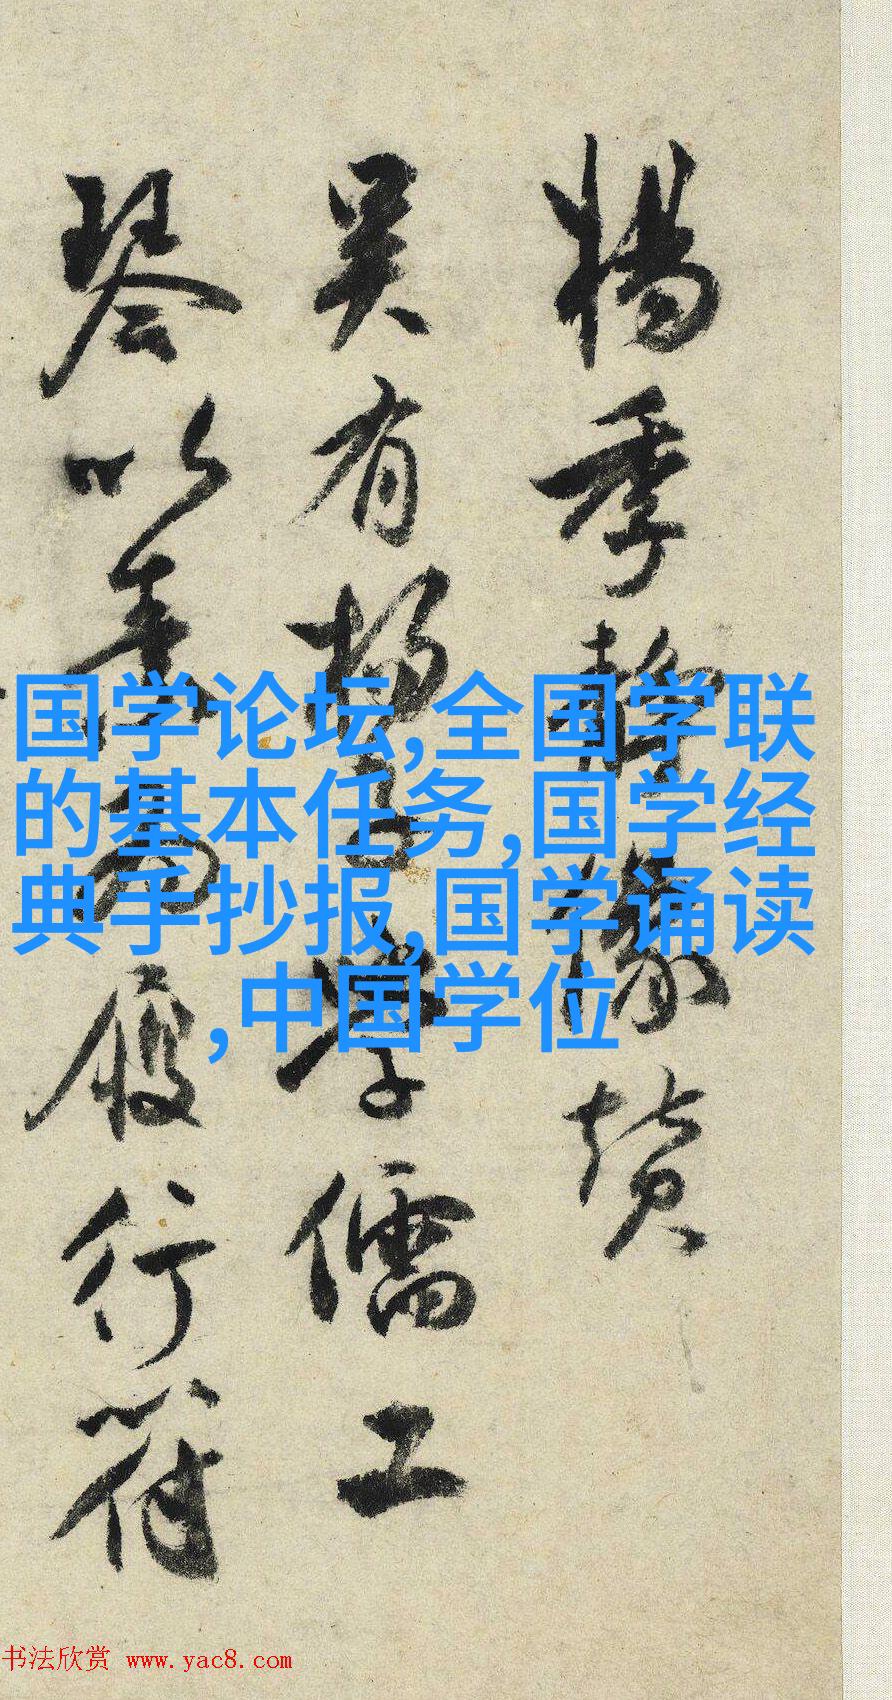 楊季靜像贊
吴有楊子學儒工
琴以養為履行符
国学论坛,全国学联
的基本任务,国学经
典手抄报,国学诵读
,中国学位
书法欣赏 www.yac8.com